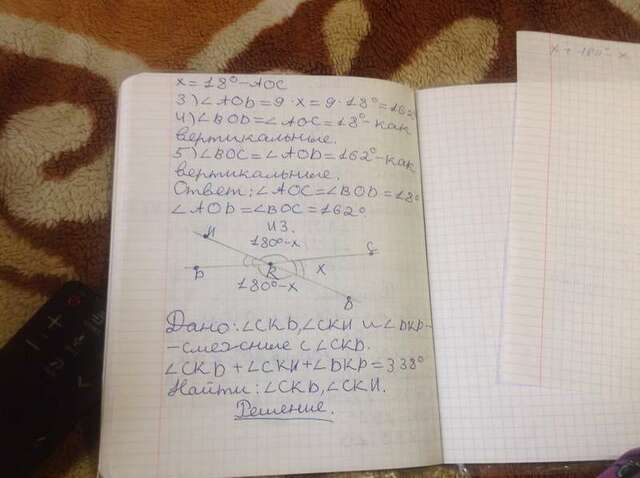 x = 18° - AOC
3) ∠AOD = 9 · x = 9 · 18° = 162°
4) ∠BOD = ∠AOC = 18° - как
вертикальные.
5) ∠BOC = ∠AOD = 162° - как
вертикальные.
Ответ: ∠AOC = ∠BOD = 18°
∠AOD = ∠BOC = 162°.
из.
И
180° - x
C
P
K
x
180° - x
D
Дано: ∠CKD, ∠CKИ и ∠DKP-
- смежные с ∠CKD.
∠CKD + ∠CKИ + ∠DKP = 338°
Найти: ∠CKD, ∠CKИ.
Решение.
x + 180° - x